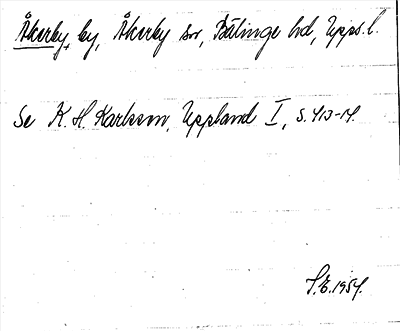 Åkerby, by, Åkerby sn, Bälinge hd, Upps. l.
Se K. H. Karlsson, Uppland I, s. 413-14.
S.E. 1954.